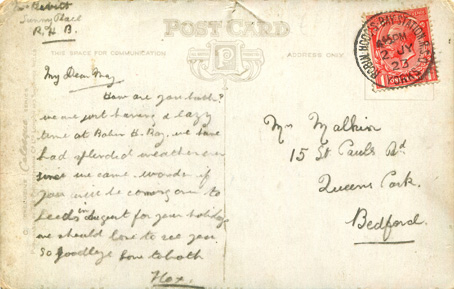 Sunny Place
R. H. B.
POST CARD
THIS SPACE FOR COMMUNICATION
ADDRESS ONLY
P
ROBIN HOOD'S BAY STATION R.S.O.
PM
2 JY
23
YORKS
My Dear May
How are you both?
we are just having a lazy
time at Robin H. Bay, we have
had splendid weather ever
since we came. wonder if
you will be coming over to
Leeds in August for your holiday
we should love to see you.
So goodbye love to both
Mrs Malkin
15 St Pauls Rd
Queens Park.
Bedford.